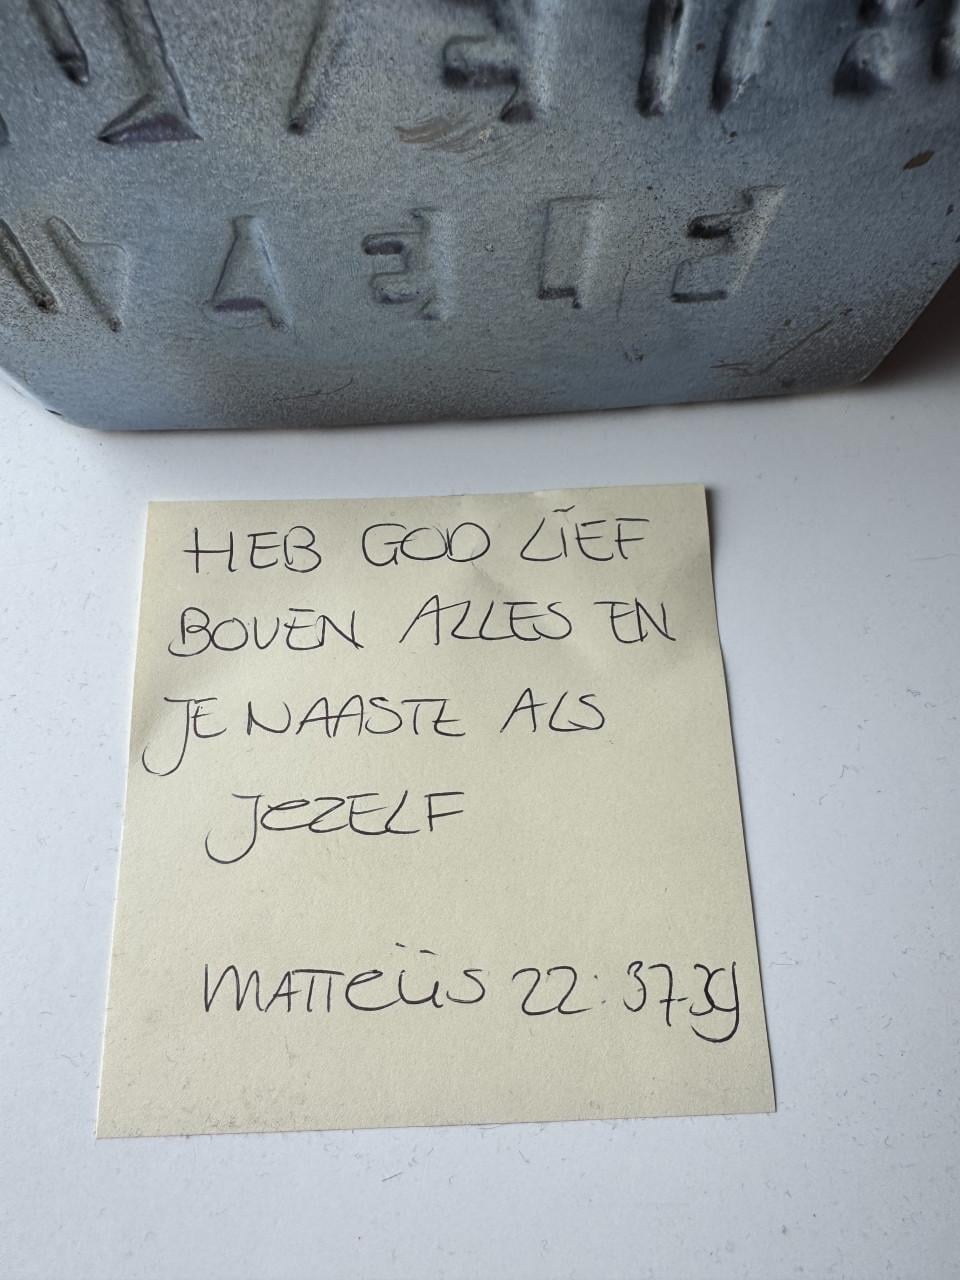 HEB GOD LIEF
BOVEN ALLES EN
JE NAASTE ALS
JeZELF
MATTeüs 22:37-39